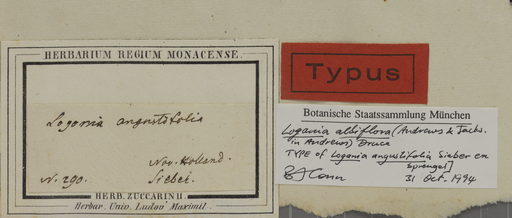 HERBARIUM REGIUM MONACENSE.
Logania angustifolia
Nov. Holland.
N. 290. Sieber.
HERB. ZUCCARINII.
Herbar. Univ. Ludov. Maximil.
Typus
Botanische Staatssammlung München
Logania albiflora (Andrews & Jacks.
in Andrews) Druce
TYPE of Logania angustifolia Sieber ex
Sprengel
BJConn 31 Oct. 1994